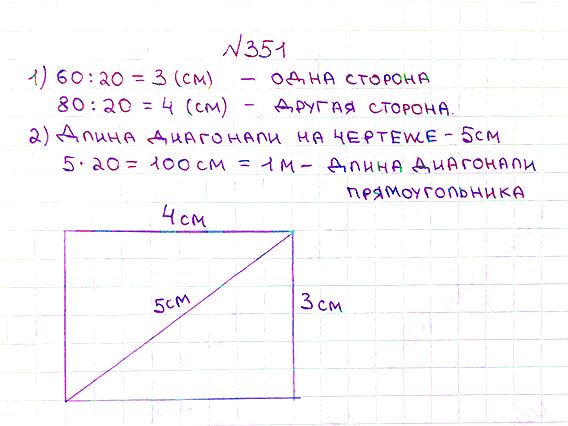 №351
1) 60:20 = 3 (см) – одна сторона
80:20 = 4 (см) – другая сторона.
2) Длина диагонали на чертеже – 5см
5·20 = 100см = 1м – длина диагонали
прямоугольника
4см
5см
3см